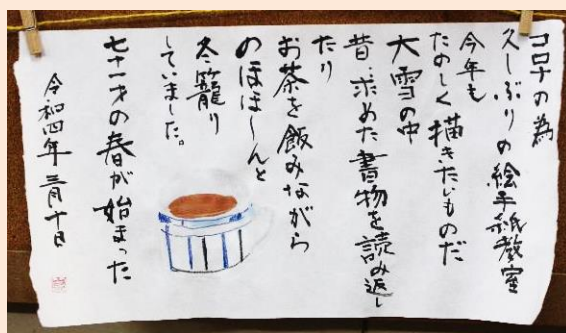 コロナの為
久しぶりの絵手紙教室
今年も
たのしく描きたいものだ
大雪の中
昔、求めた書物を読み返し
たり
お茶を飲みながら
のほほ〜んと
冬籠り
していました。
七十一才の春が始まった
令和四年三月十日